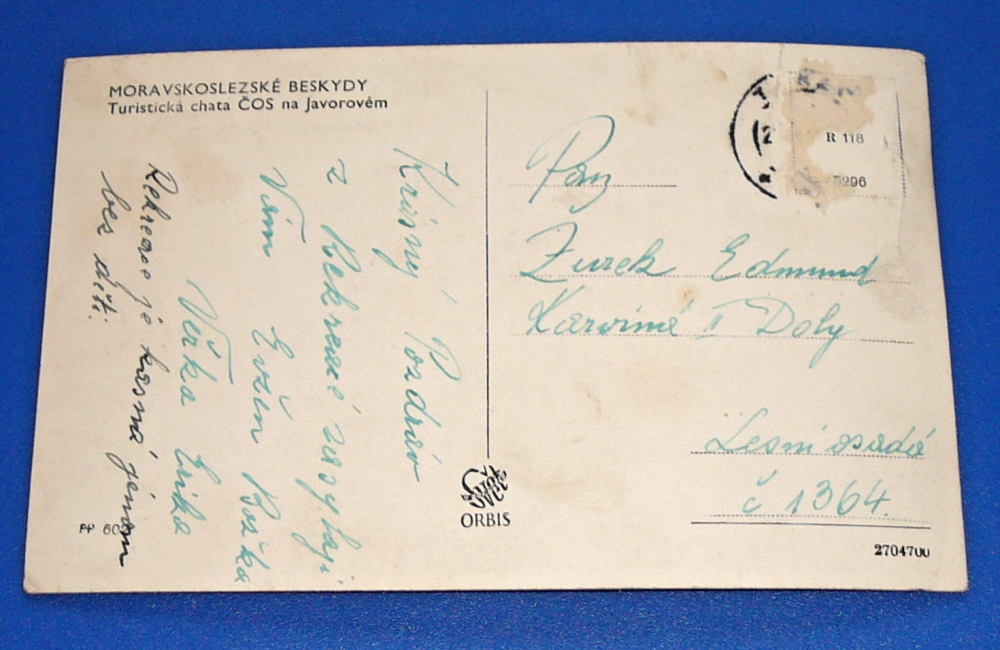 MORAVSKOSLEZSKÉ BESKYDY
Turistická chata ČOS na Javorovém
Krásný Pozdrav
z Rekreace zasylaji
Vám Evžen Božka
Věrka Erika
Rekreace je krasná jenom
bez dětí.
PP 60
ORBIS
R 118
5296
Pan
Žurek Edmund
Karviná II Doly
Lesní osada
č 1364.
2704700